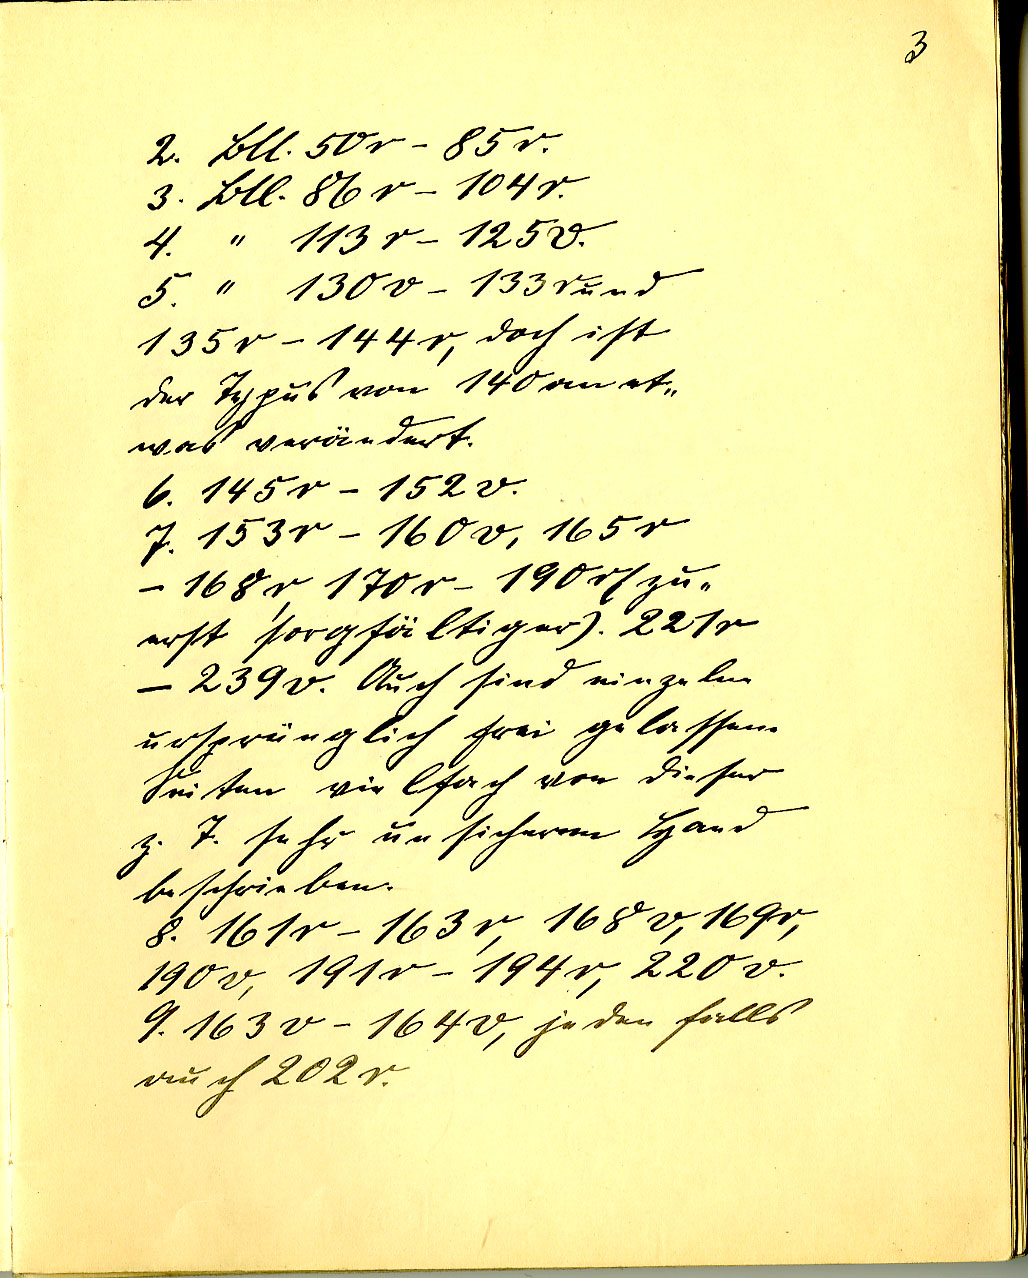 3
2. Bll. 50r – 85r.
3. Bll. 86r – 104r.
4. " 113r – 125v.
5. " 130v – 133r und
135r – 144r, doch ist
der Typus von 140 an et„
was verändert.
6. 145r – 152v.
7. 153r – 160v, 165r
– 168r, 170r – 190r (zu„
erst sorgfältiger). 221r
– 239v. Auch sind einzelne
ursprünglich frei gelassene
Seiten vielfach von dieser
z. T. sehr unsicheren Hand
beschrieben.
8. 161r – 163r, 168v, 169r,
190v, 191r – 194r, 220v.
9. 163v – 164v, jedenfalls
auch 202r.